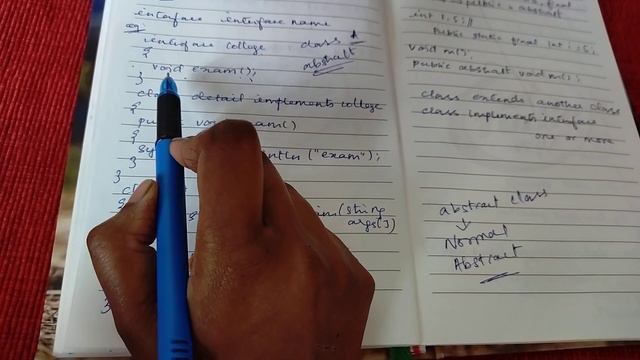 interface interface name
eg:
interface college class A
{ abstract
void exam();
}
class detail implements college
{
public void exam()
{
("exam");
}
}
{
(String
args[])
}
public abstract
int i=5; //
Public static final int i=5;
void m();
public abstract void m();
class extends another class
class implements interface
one or more
abstract class
↓
Normal
Abstract